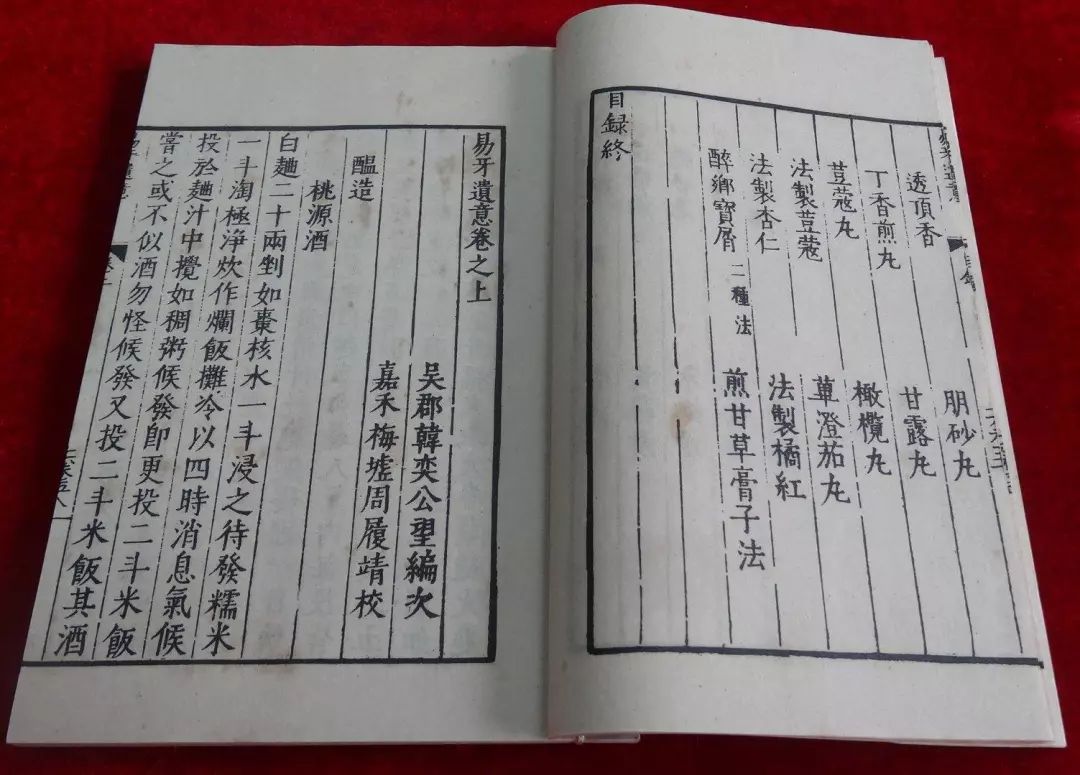 透頂香 朋砂丸
丁香煎丸 甘露丸
荳蔻丸 橄欖丸
法製荳蔻 蓽澄茄丸
法製杏仁 法製橘紅
醉鄉寶屑 二種法 煎甘草膏子法
目録終
易牙遺意卷之上
吳郡韓奕公望編次
嘉禾梅墟周履靖校
醞造
桃源酒
白麯二十兩剉如棗核水一斗浸之待發糯米
一斗淘極浄炊作爛飯攤冷以四時消息氣候
投於麯汁中攪如稠粥候發卽更投二斗米飯
嘗之或不似酒勿怪候發又投二斗米飯其酒